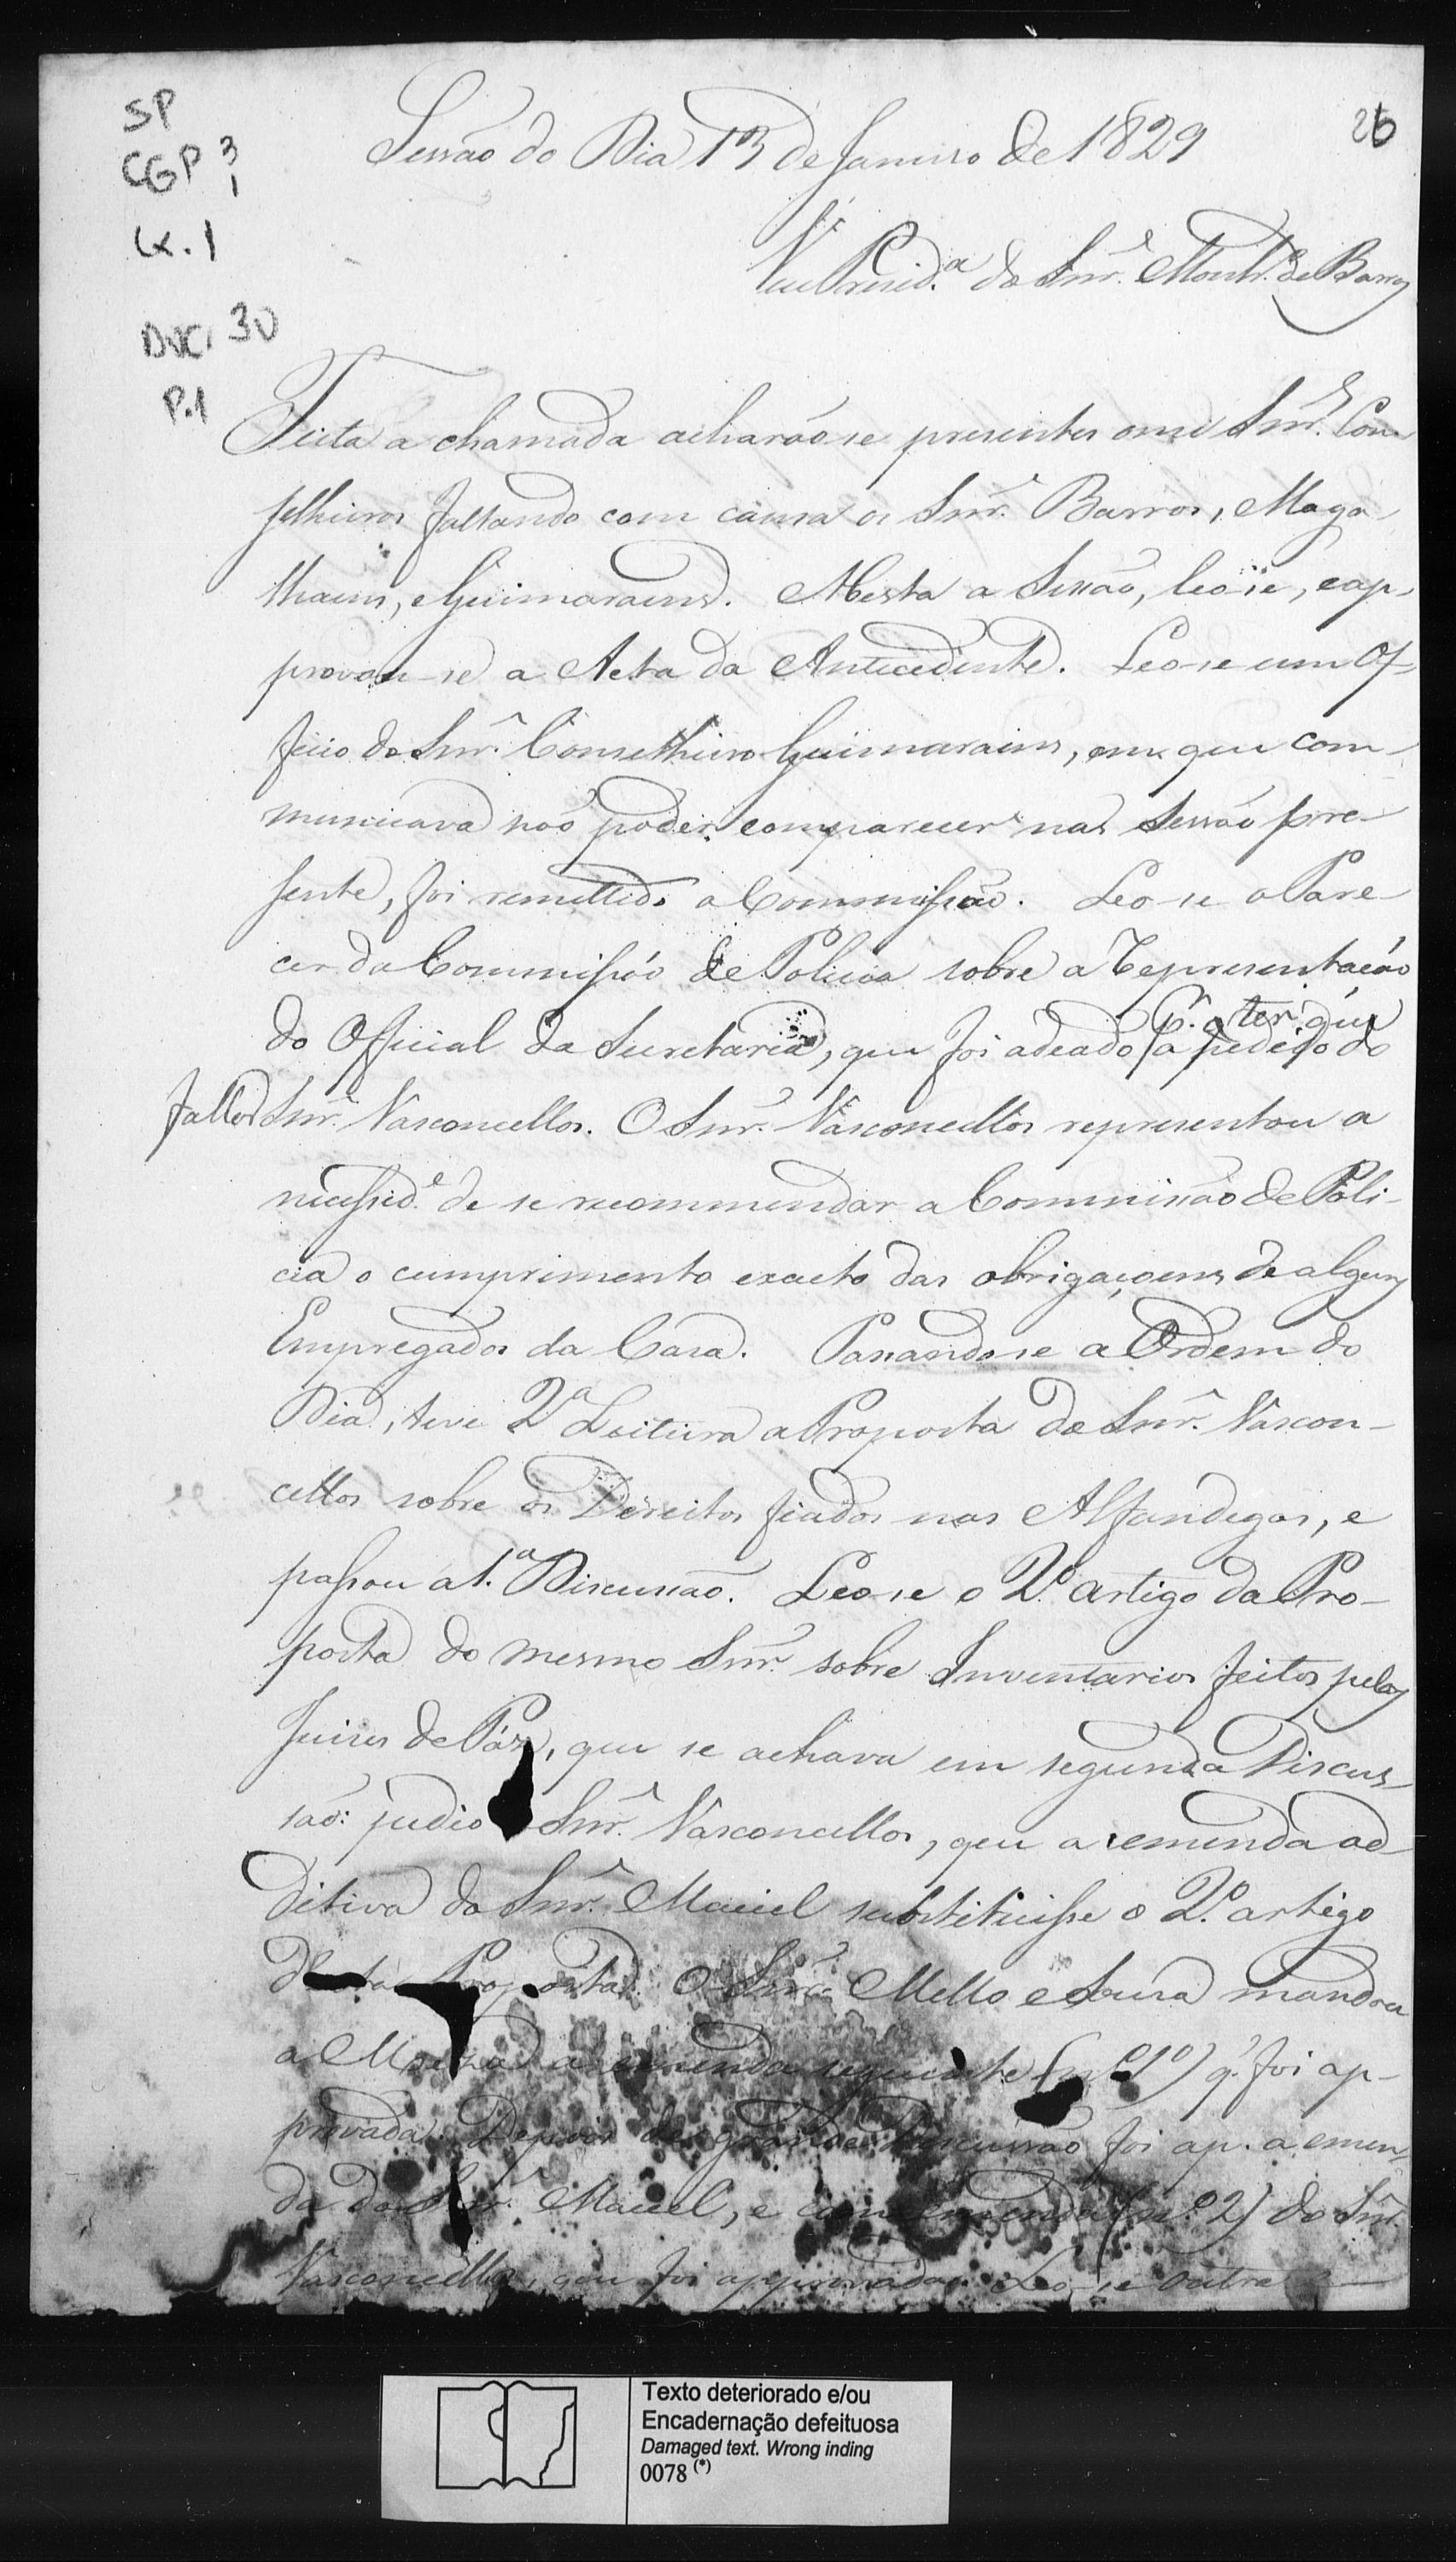 SP
CGP 3
1
Cx. 1
Doc. 30
P.1
26
Sessão do Dia 13 de Janeiro de 1829
Vice Presid.ª do Snr. Montr.º de Barros
Feita a chamada acharão-se presentes onze Snr.es Con-
selheiros faltando com causa os Snr.es Barros, Maga-
lhaens, e Guimaraens. Aberta a Sessão, leo-se, e ap-
provou-se a Acta da Antecedente. Leo-se um Of-
ficio do Snr. Conselheiro Guimaraens, em que com-
municava não poder comparecer na Sessão pre-
sente, foi remettido a Commissão. Leo-se o Pare-
cer da Commissão de Policia sobre a Representação
do Official da Secretaria, que foi adeado a pedido do
p.r ter que
fallar Snr. Vasconcellos. O Snr. Vasconcellos representou a
necessid.e de se recommendar a Commissão de Poli-
cia o cumprimento exacto das obrigaçoens de alguns
Empregados da Casa. Passando-se a Ordem do
Dia, teve 2ª Leitura a Proposta do Snr. Vascon-
cellos sobre os Direitos fiados nas Alfandegas, e
passou a 1.ª Discussão. Leo-se o 2.º artigo da Pro-
posta do mesmo Snr. sobre Inventarios feitos pelos
Juizes de Páz, que se achava em segunda Discus-
são: pedio Snr. Vasconcellos, que a emenda ad-
ditiva do Snr. Maciel substituisse o 2.º artigo
desta Proposta. O Snr. Mello e Souza mandou
a Meza a emenda seguinte (nº 1º) q. foi ap-
provada. Depois de grande Discussão foi ap. a emen-
da do Snr. Maciel, e com emenda (n.º 2) do Snr.
Vasconcellos, que foi approvada. Leo-se outra
Texto deteriorado e/ou
Encadernação defeituosa
Damaged text. Wrong inding
0078 (*)